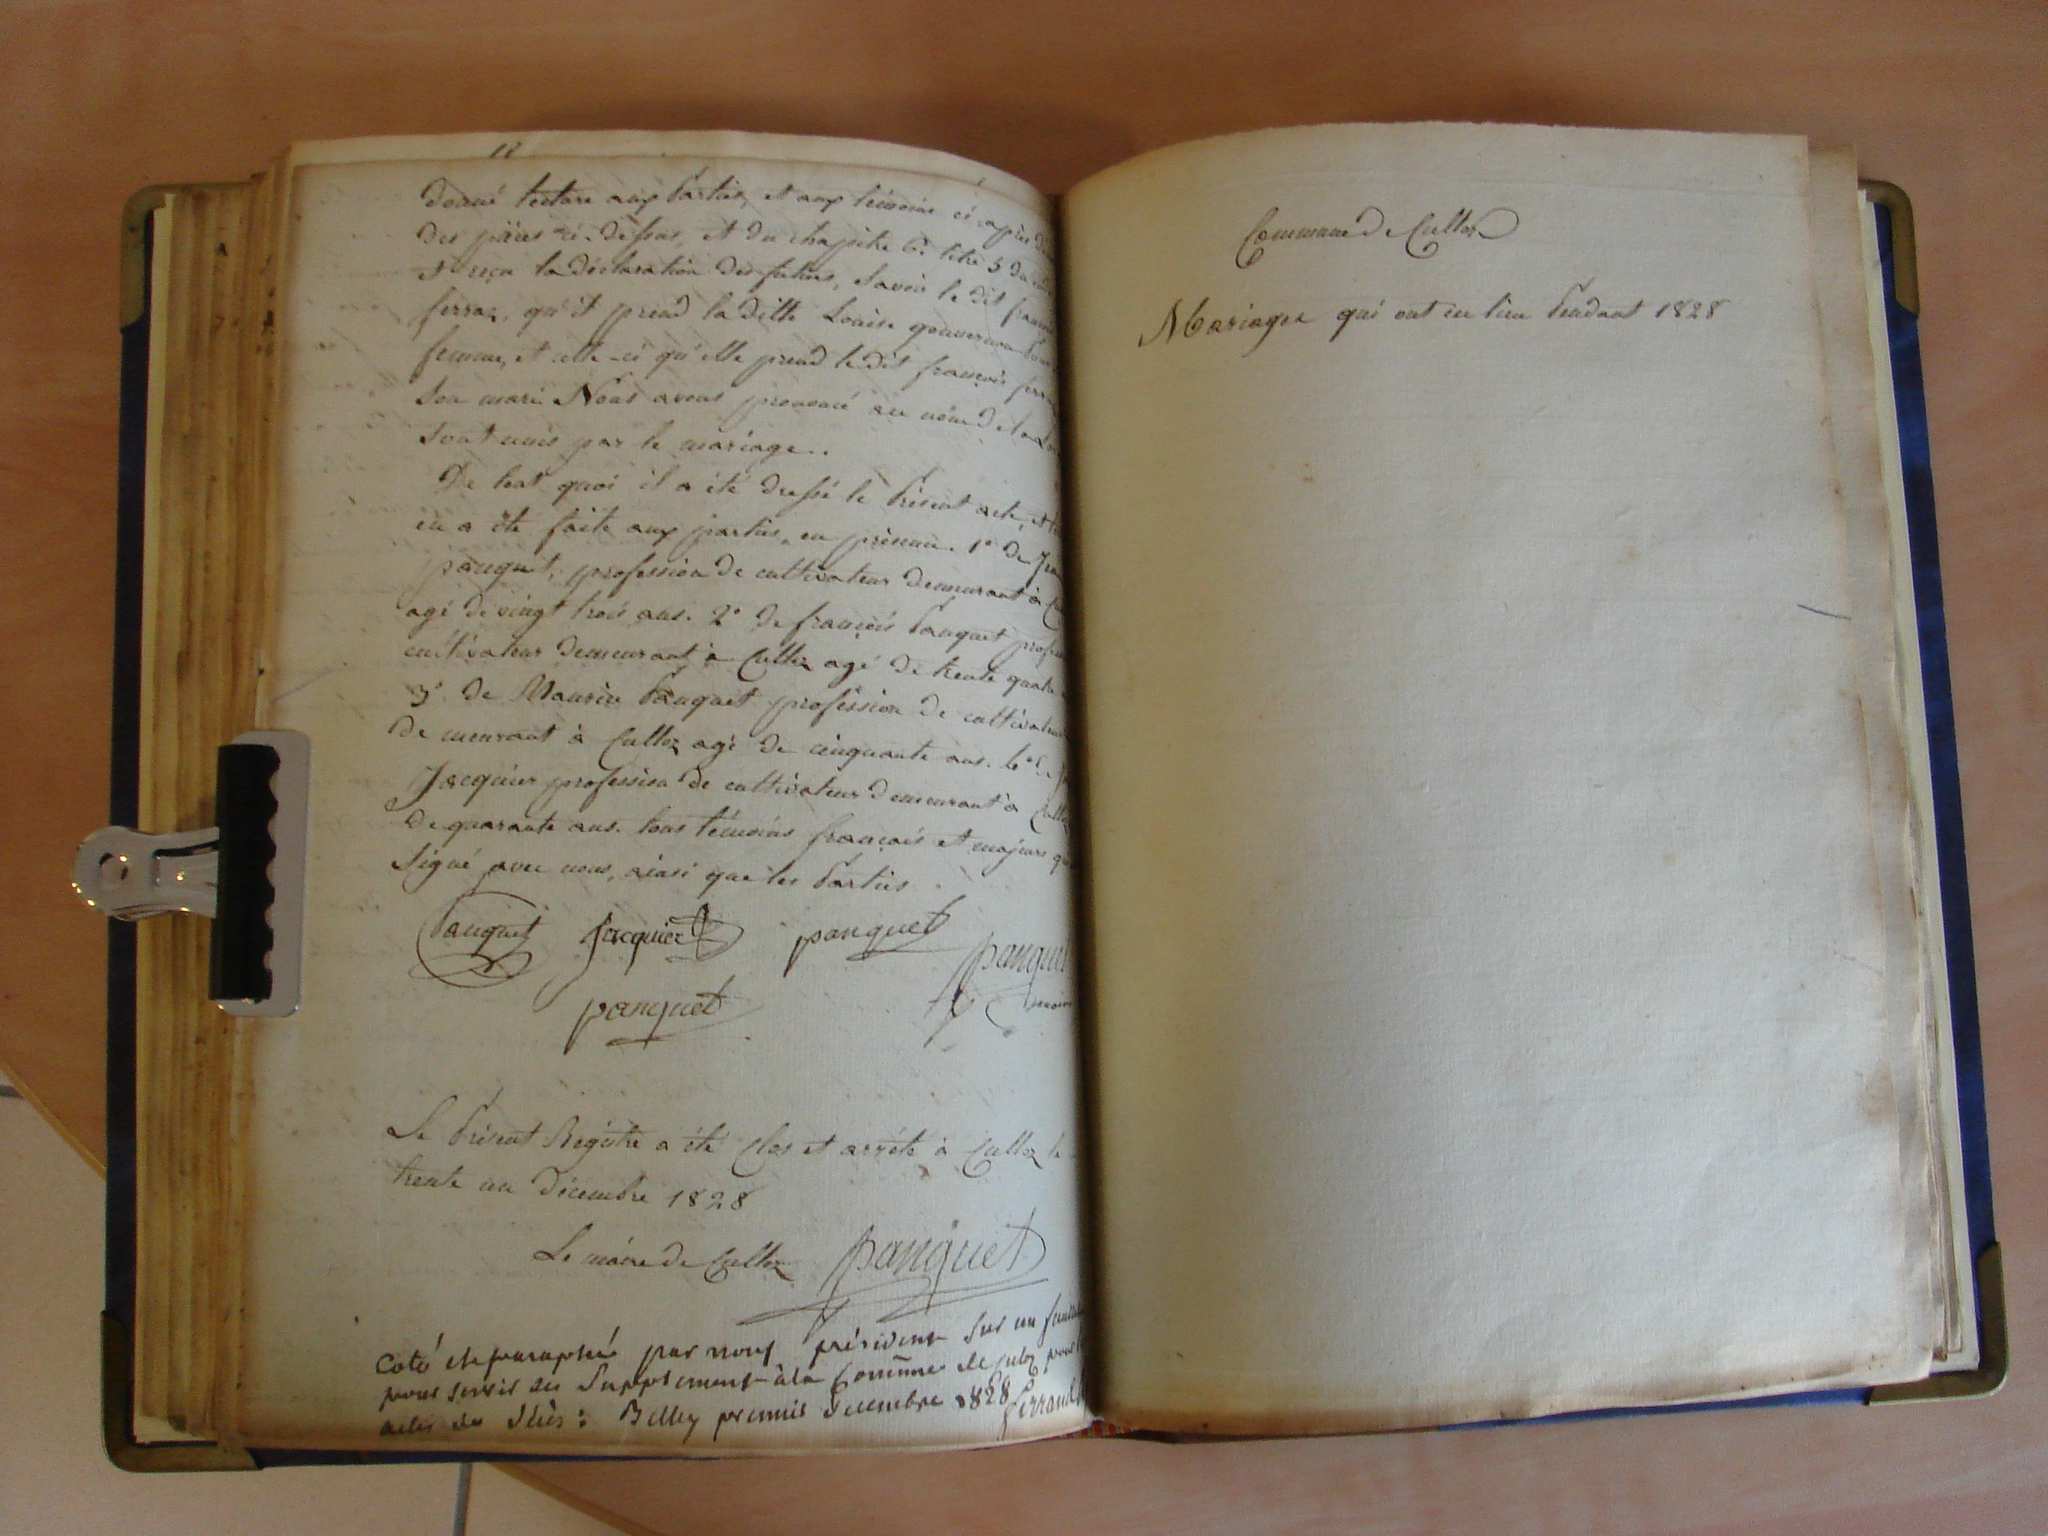 18
donné lecture aux parties, et aux témoins ci-après
des pièces ci-dessus, et du chapitre 6e titre 5 du
et reçu la déclaration des futurs, savoir le dit françois
ferraz, qu'il prend la ditte Louise
femme, et celle-ci qu'elle prend le dit françois
son mari. Nous avons prononcé au nom de la Loi
sont unis par le mariage..
De tout quoi il a été dressé le présent acte, et
en a été faite aux parties, en présence. 1° de
pauquet, profession de cultivateur demeurant à
agé de vingt trois ans. 2° de françois Pauquet
cultivateur demeurant à Culloz agé de trente quatre
3° de Maurice Pauquet profession de cultivateur
demeurant à Culloz agé de cinquante ans. 4° de
Jacquier profession de cultivateur demeurant à Culloz
de quarante ans. tous témoins français et majeurs
signé avec nous, ainsi que les Parties
Pauquet Jacquier pauquet pauquet
pauquet
Le Présent Registre a été Clos et arrêté à Culloz le
trente un Décembre 1828
Le maire de Culloz pauquet
Coté et paraphé par nous président sur un
pour servir de Supplement à la Commune de Culoz pour
actes de Décès: Belley premier decembre 1828
Commune de Culloz
Mariages qui ont eu lieu Pendant 1828